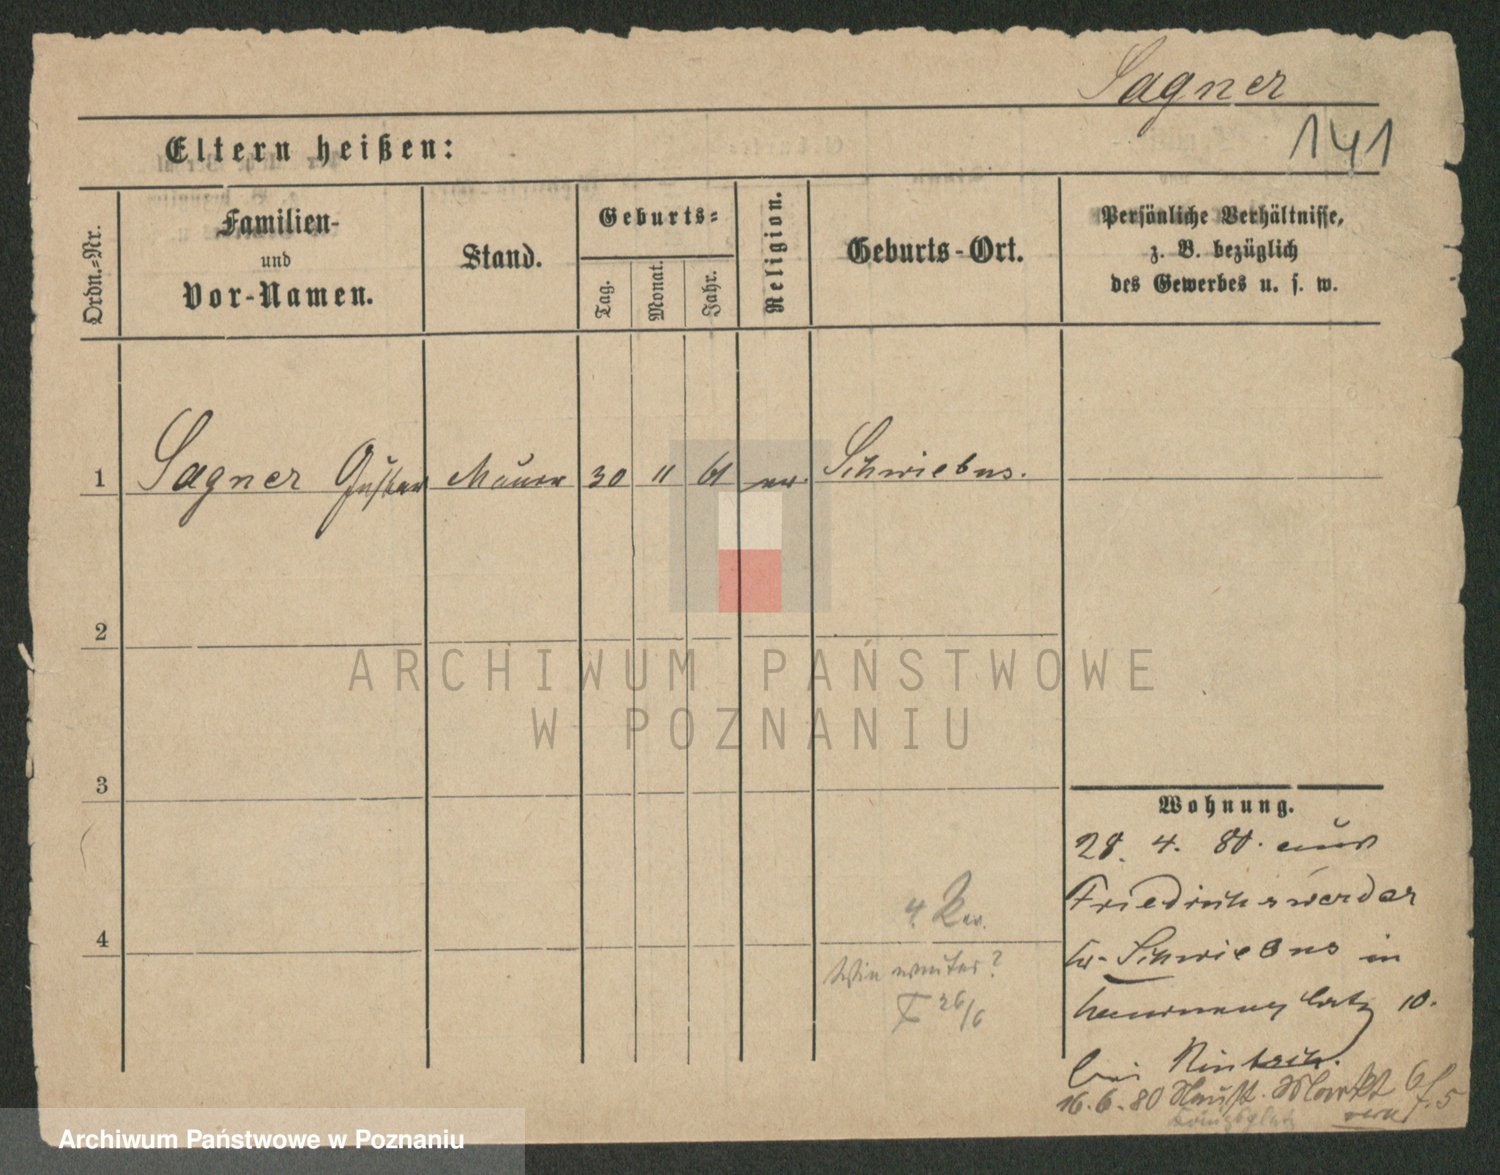 Sagner
141
Eltern heißen:
Ordn.-Nr.
Familien-
und
Vor-Namen.
Stand.
Geburts-
Tag.
Monat.
Jahr.
Religion.
Geburts-Ort.
Persönliche Verhältnisse,
z. B. bezüglich
des Gewerbes u. s. w.
1 Sagner Gustav Maurer 30 11 61 ev. Schwiebus.
2
3
4
ARCHIWUM PAŃSTWOWE
W POZNANIU
Wohnung.
28. 4. 80. aus
Friedrichswerder
Kr. Schwiebus in
10.
bei
16. 6. 80 Neust. Markt 6
4.
26/6
Königsplatz
Archiwum Państwowe w Poznaniu